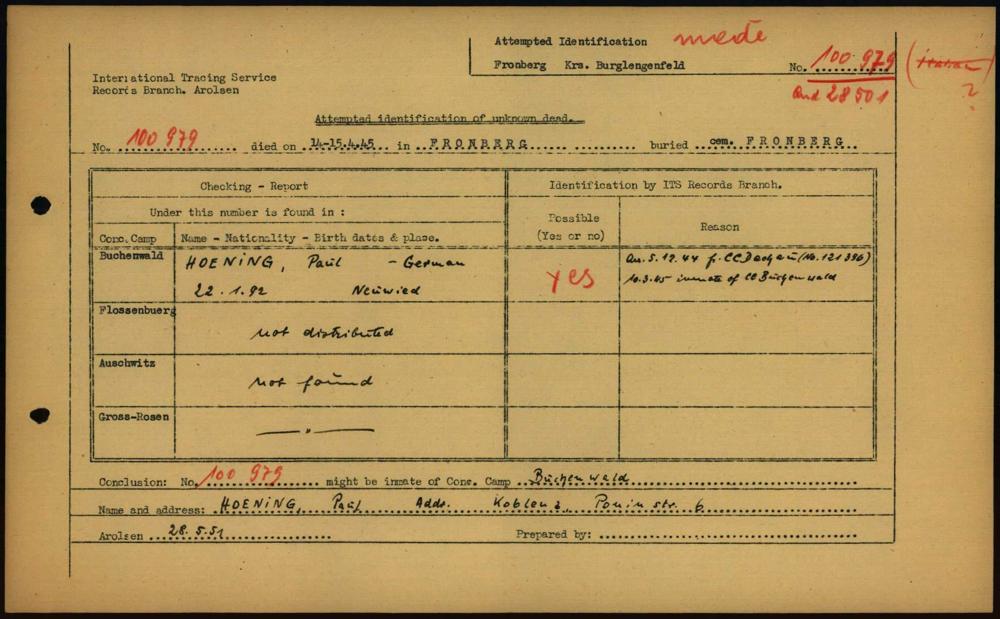 Attempted Identification made
Fronberg Krs. Burglengenfeld
No. 100 979
and 28501 ?
International Tracing Service
Records Branch. Arolsen
Attempted identification of unknown dead.
No. 100 979 died on 14-15.4.45 in FRONBERG buried cem. FRONBERG
Checking - Report
Identification by ITS Records Branch.
Under this number is found in :
Possible (Yes or no)
Reason
Conc. Camp
Name - Nationality - Birth dates & place.
Buchenwald
HOENING, Paul - German
22.1.92 Neuwied
yes
5.12.44 f. CC Dachau (No. 121396)
10.3.45 inmate of CC Buchenwald
Flossenbuerg
not distributed
Auschwitz
not found
Gross-Rosen
— " —
Conclusion: No. 100 979 might be inmate of Conc. Camp Buchenwald
Name and address: HOENING, Paul Addr. Koblenz, str. 6
Arolsen 28.5.51
Prepared by: